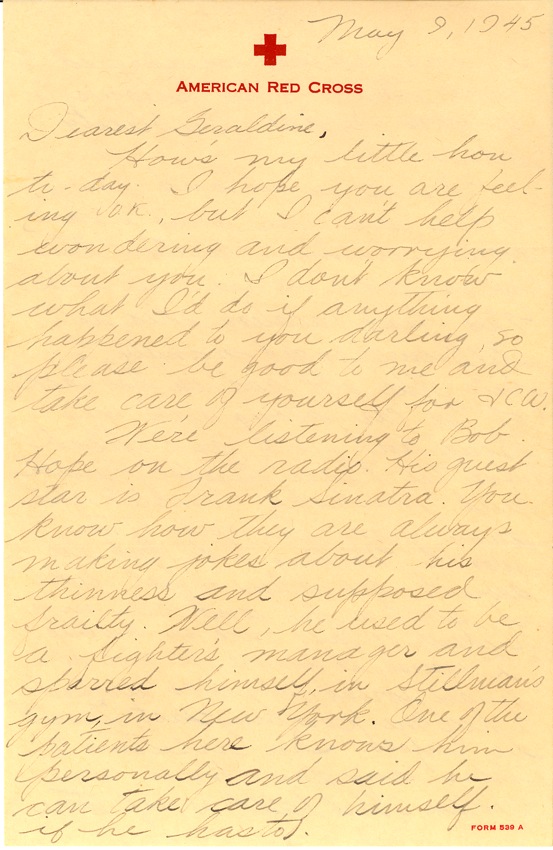 May 9, 1945
AMERICAN RED CROSS
Dearest Geraldine,
How's my little hon
to-day. I hope you are feel-
ing OK., but I can't help
wondering and worrying
about you. I don't know
what I'd do if anything
happened to you darling, so
please be good to me and
take care of yourself for
We're listening to Bob
Hope on the radio. His guest
star is Frank Sinatra. You
know how they are always
making jokes about his
thinness and supposed
frailty. Well, he used to be
a fighter's manager and
sparred himself, in Stillman's
gym, in New York. One of the
patients here knows him
personally and said he
can take care of himself.
if he has to).
FORM 539 A